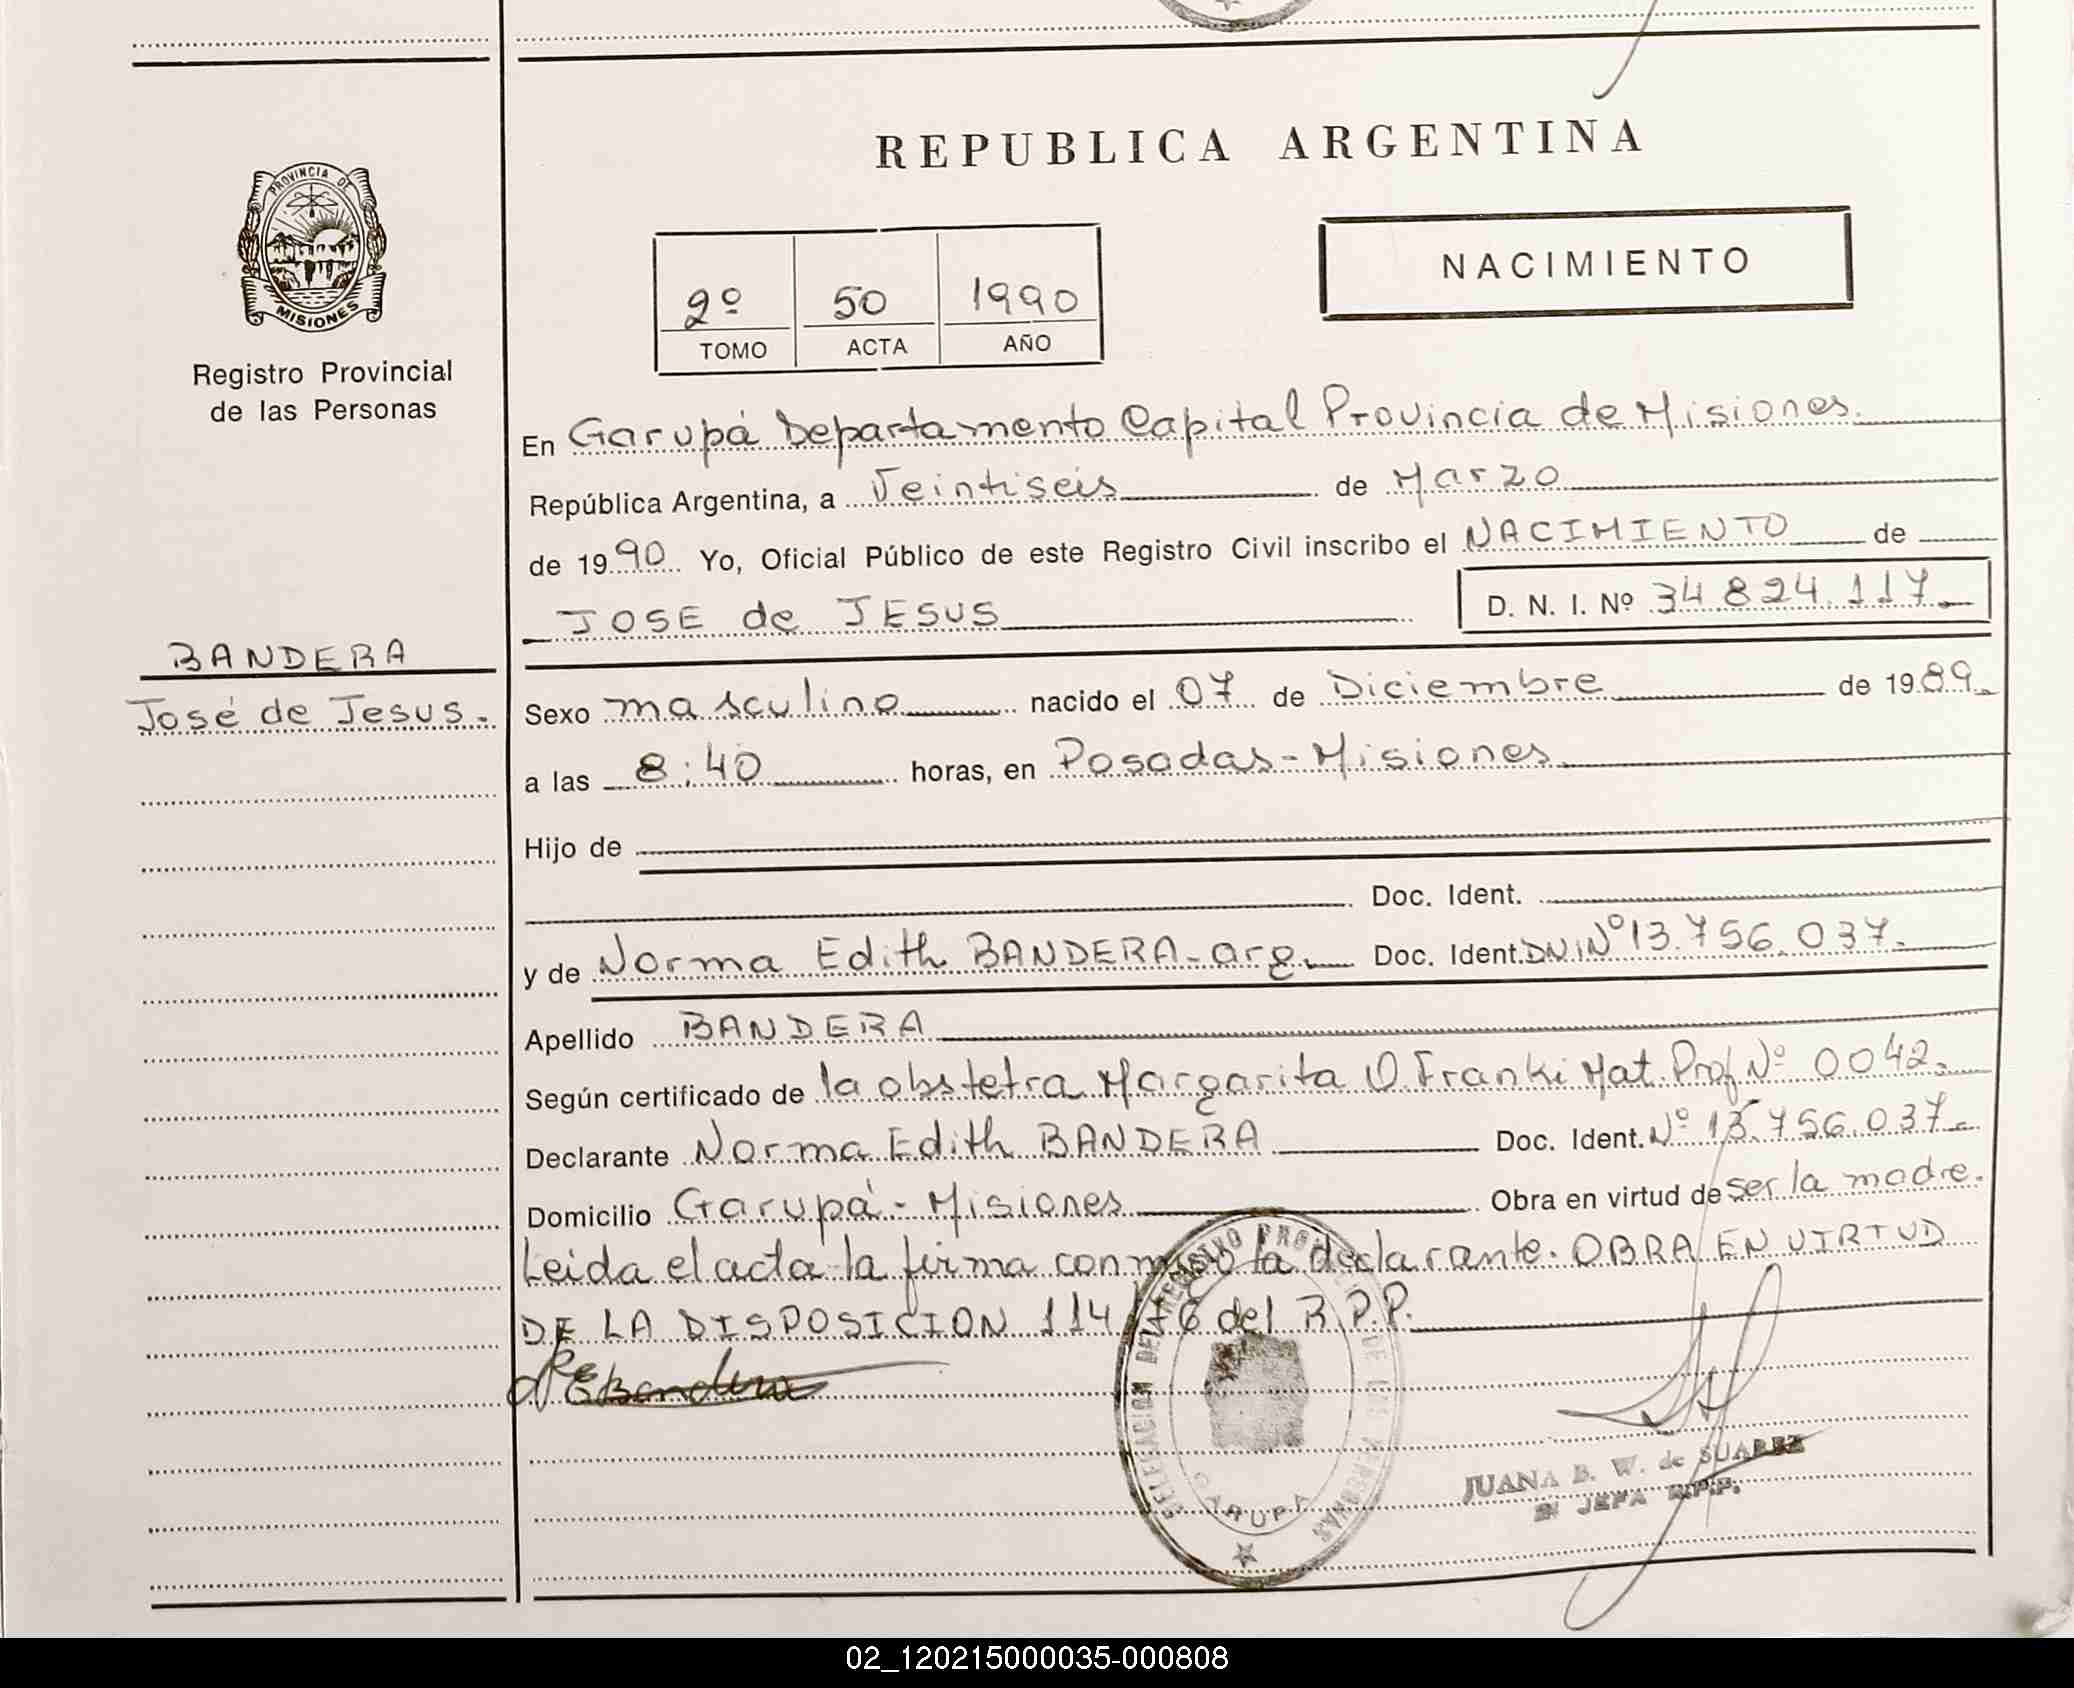 REPUBLICA ARGENTINA
PROVINCIA DE
MISIONES
Registro Provincial
de las Personas
2º 50 1990
TOMO ACTA AÑO
NACIMIENTO
En Garupá Departamento Capital Provincia de Misiones.
República Argentina, a Veintiseis de Marzo
de 1990 Yo, Oficial Público de este Registro Civil inscribo el NACIMIENTO de
JOSE de JESUS D. N. I. Nº 34.824.117
BANDERA
José de Jesus.
Sexo masculino nacido el 07 de Diciembre de 1989.
a las 8:40 horas, en Posadas-Misiones.
Hijo de
Doc. Ident.
y de Norma Edith BANDERA-arg. Doc. Ident. DNI Nº 13.756.037.
Apellido BANDERA
Según certificado de la obstetra Margarita O. Franki Mat. Prof Nº 0042.
Declarante Norma Edith BANDERA Doc. Ident. Nº 13.756.037.
Domicilio Garupá-Misiones Obra en virtud de ser la madre.
Leida el acta la firma conmigo la declarante. OBRA EN VIRTUD
DE LA DISPOSICION 114/76 del R.P.P.
DELEGACION DEL REGISTRO PROVINCIAL DE LAS PERSONAS
GARUPA
JUANA B. W. de SUAREZ
JEFA R.P.P.
02_120215000035-000808